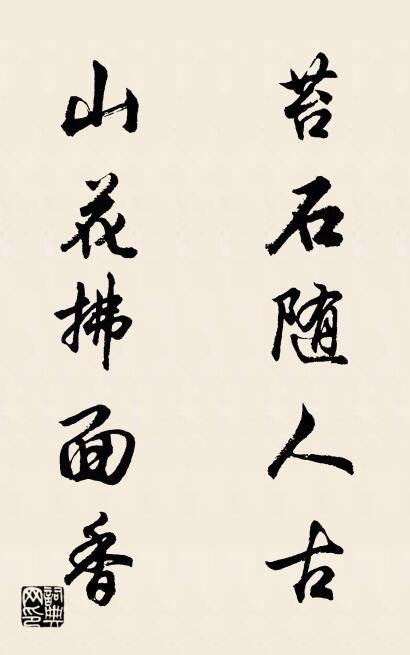 苔石随人古
山花拂面香
詞典网印